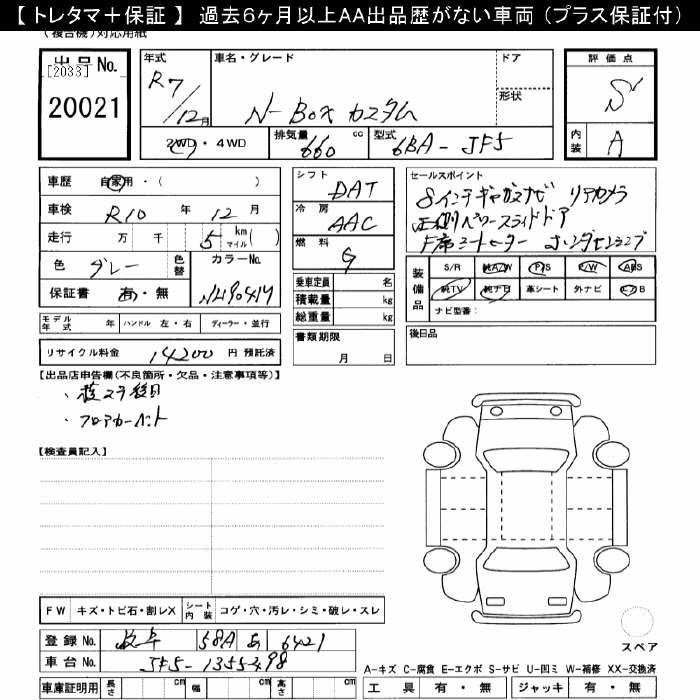 【 トレタマ＋保証 】 過去6ヶ月以上AA出品歴がない車両 (プラス保証付)
(複合機)対応用紙
出品No.
[2033]
20021
年式
R7/12月
車名・グレード
N-BOX カスタム
ドア
形状
2WD・4WD
排気量 660 cc
型式 6BA-JF5
評価点
S
内装 A
車歴 自家用・( )
車検 R10 年 12 月
走行 万 千 5 km マイル ( )
色 グレー 色替
カラーNo.
保証書 有・無
NH904M
モデル年式 年 ハンドル 左・右 ディーラー・並行
リサイクル料金 14200 円 預託済
シフト DAT
冷房 AAC
燃料 G
乗車定員 名
積載量 kg
総重量 kg
書類期限
月 日
セールスポイント
8インチギャザズナビ リアカメラ
両側パワースライドドア
F席シートヒーター ホンダセンシング
装備品
S/R 純A/W P/S P/W ABS
純TV 純ナビ 革シート 外ナビ エアB
ナビ型番：
後日品
【出品店申告欄(不良箇所・欠品・注意事項等)】
・フロアカーペット
【検査員記入】
FW キズ・トビ石・割レX シート内装 コゲ・穴・汚レ・シミ・破レ・スレ
登録No. 岐阜 581A あ 6421
車台No. JF5-1355398
車庫証明用 長さ cm 幅 cm 高さ cm
スペア
A-キズ C-腐食 E-エクボ S-サビ U-凹ミ W-補修 XX-交換済
工具 有・無 ジャッキ 有・無